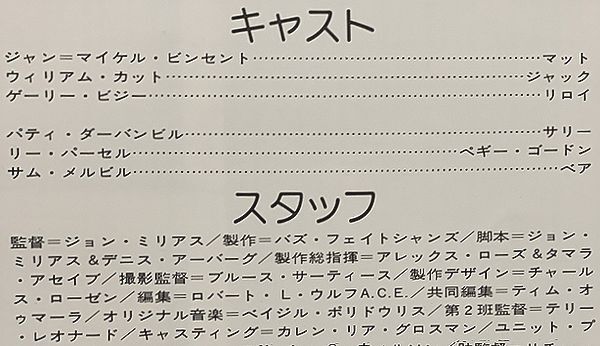 キャスト
ジャン＝マイケル・ビンセント……………………………マット
ウィリアム・カット……………………………ジャック
ゲーリー・ビジー……………………………リロイ
パティ・ダーバンビル……………………………サリー
リー・パーセル……………………………ペギー・ゴードン
サム・メルビル……………………………ベア
スタッフ
監督＝ジョン・ミリアス／製作＝バズ・フェイトシャンズ／脚本＝ジョン・
ミリアス＆デニス・アーバーグ／製作総指揮＝アレックス・ローズ＆タマラ
・アセイブ／撮影監督＝ブルース・サーティース／製作デザイン＝チャール
ス・ローゼン／編集＝ロバート・L・ウルフA.C.E.／共同編集＝ティム・オ
ゥマーラ／オリジナル音楽＝ベイジル・ポリドウリス／第２班監督＝テリー
・レオナード／キャスティング＝カレン・リア・グロスマン／ユニット・プ